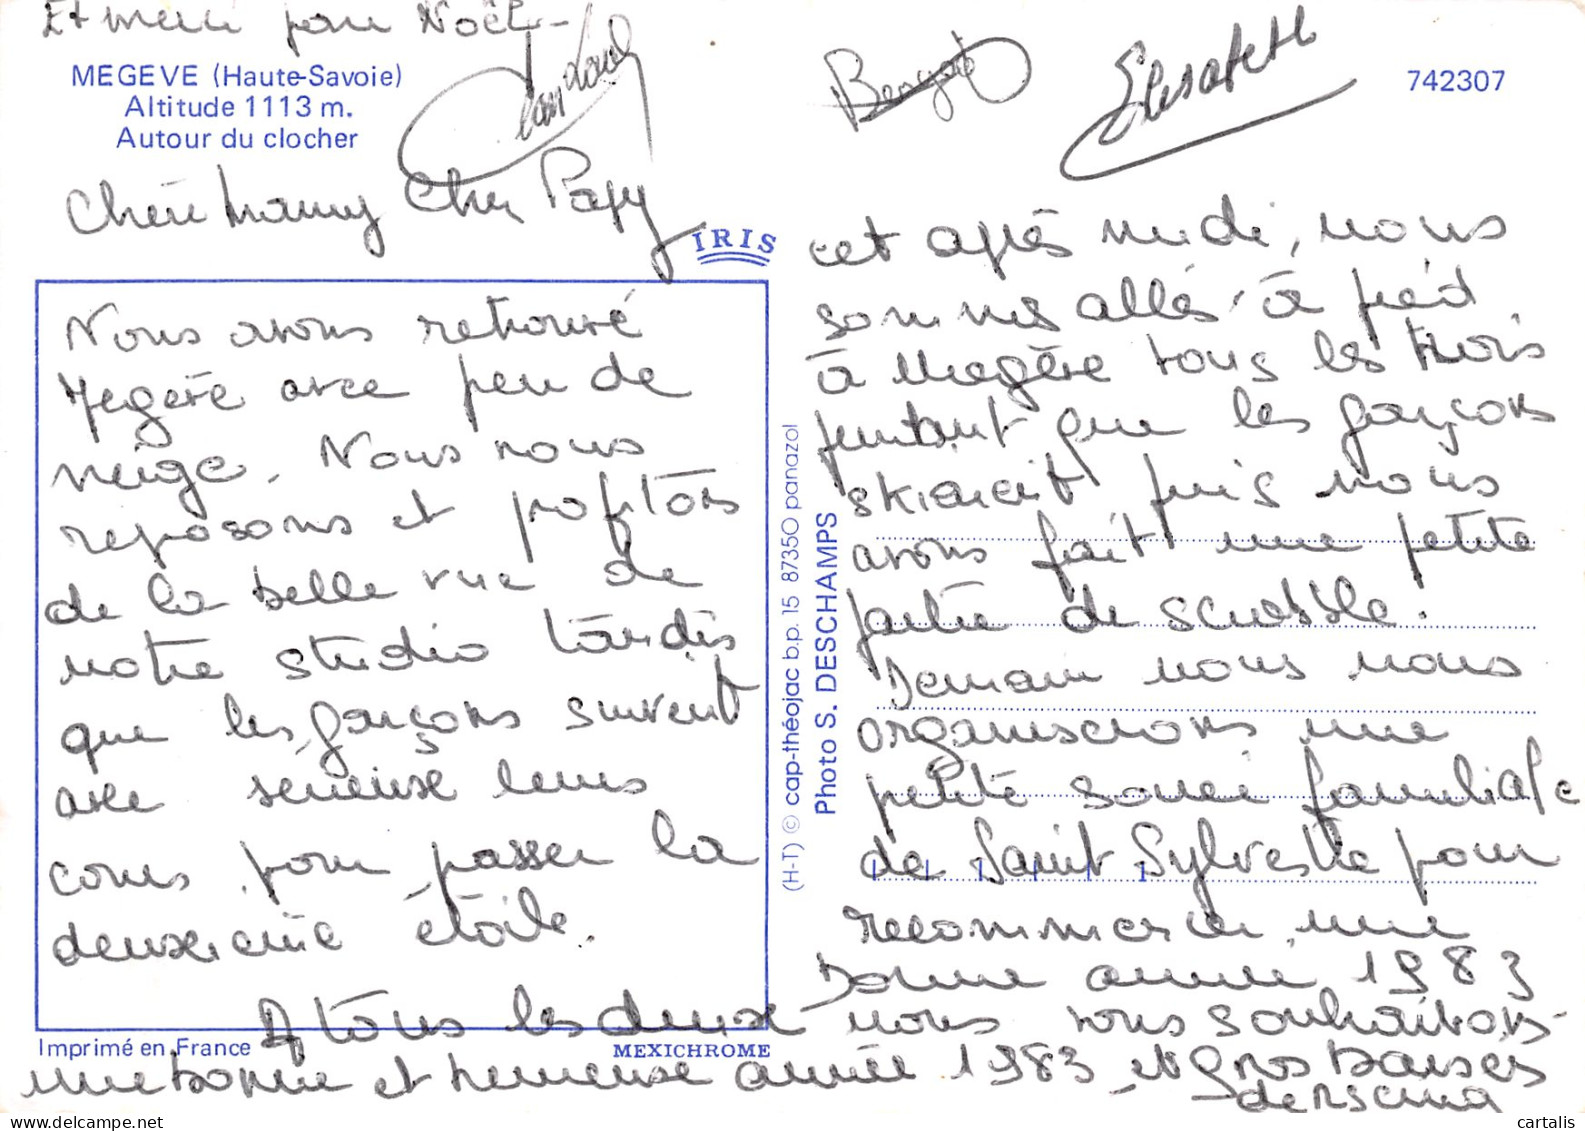 Et merci pour Noël -
MEGEVE (Haute-Savoie)
Altitude 1113 m.
Autour du clocher
Benoit
Elisabeth
742307
Chère Mamy Cher Papy
IRIS
Nous avons retrouvé
Megève avec peu de
neige. Nous nous
reposons et profitons
de la belle vue de
notre studio tandis
que les garçons suivent
avec sérieux leurs
cours pour passer la
deuxième étoile.
(H-T) © cap-théojac b.p. 15 87350 panazol
Photo S. DESCHAMPS
cet après midi, nous
sommes allés à pied
à Megève tous les trois
pendant que les garçons
skiaient puis nous
avons fait une petite
partie de scrabble.
Demain nous nous
organiserons une
petite soirée familiale
de Saint Sylvestre pour
recommencer une
bonne année 1983
A tous les deux nous vous souhaitons
Imprimé en France
MEXICHROME
une bonne et heureuse année 1983 et gros baisers